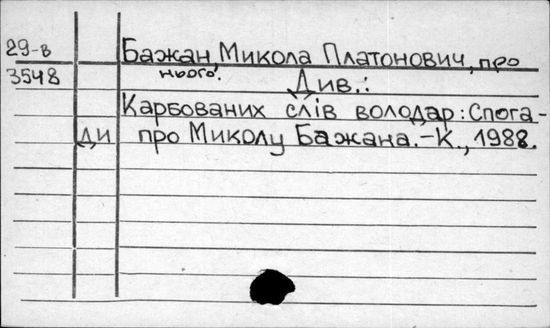 29-в
3548
Бажан, Микола Платонович, про
нього.
Див.:
Карбованих слів володар: Спога-
ди про Миколу Бажана.-К., 1988.